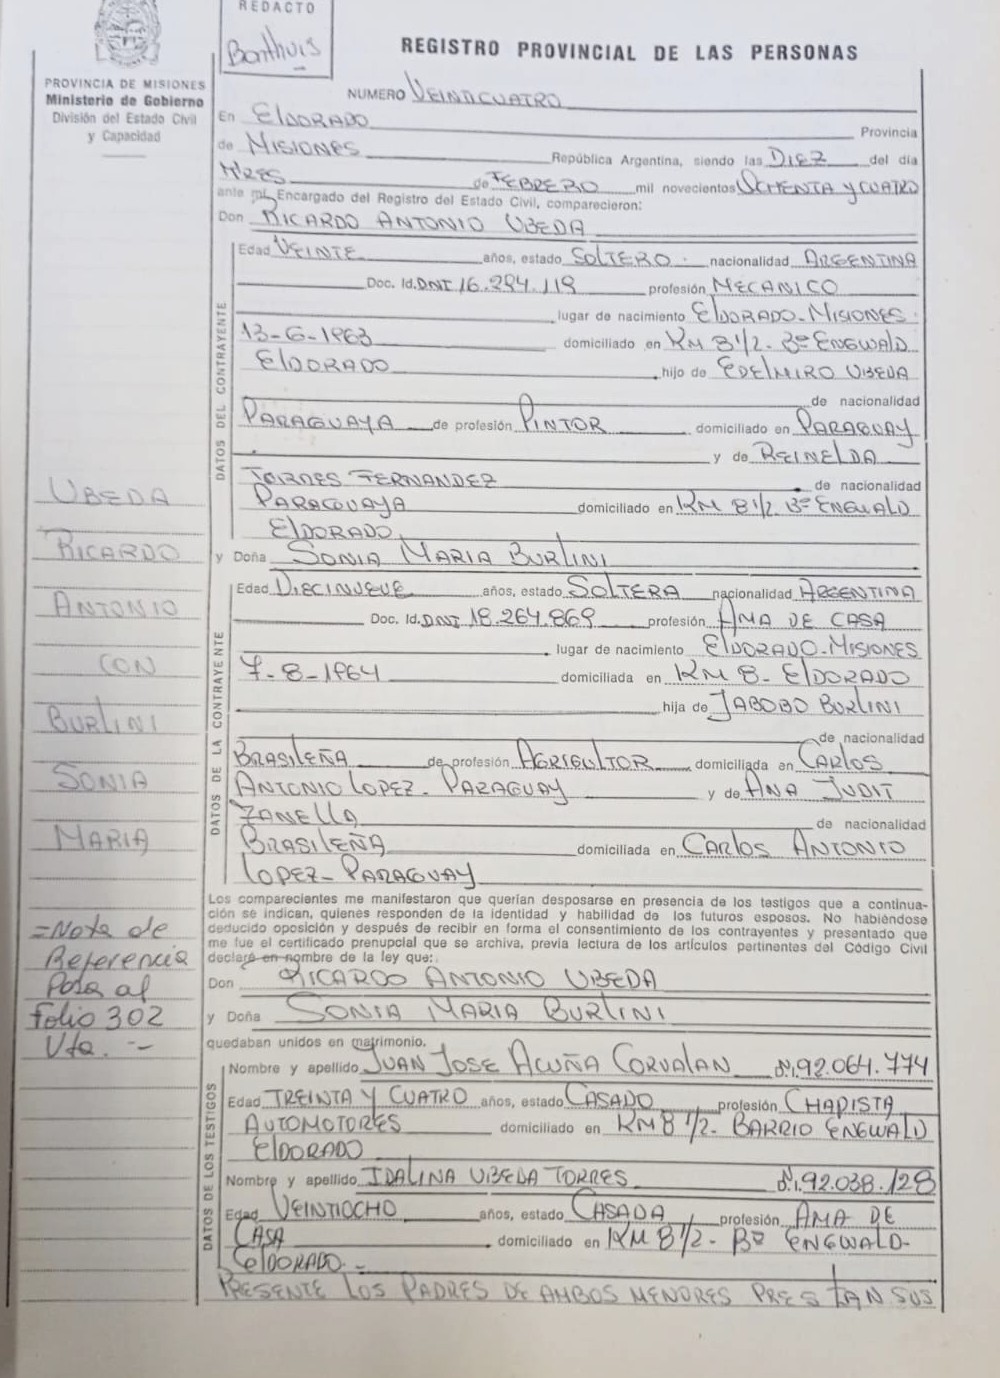 REDACTO
Bonthuis
REGISTRO PROVINCIAL DE LAS PERSONAS
PROVINCIA DE MISIONES
Ministerio de Gobierno
División del Estado Civil
y Capacidad
NUMERO VEINTICUATRO
En ELDORADO Provincia
de MISIONES República Argentina, siendo las DIEZ del día
TRES de FEBRERO mil novecientos OCHENTA Y CUATRO
ante mí, Encargado del Registro del Estado Civil, comparecieron:
Don RICARDO ANTONIO UBEDA
DATOS DEL CONTRAYENTE
Edad VEINTE años, estado SOLTERO nacionalidad ARGENTINA
Doc. Id. DNI 16.294.119 profesión MECANICO
lugar de nacimiento ELDORADO-MISIONES
13-6-1963 domiciliado en KM 8 1/2. Bº ENGWALD
ELDORADO hijo de EDELMIRO UBEDA
de nacionalidad
PARAGUAYA de profesión PINTOR domiciliado en PARAGUAY
y de REINELDA
TORRES FERNANDEZ de nacionalidad
PARAGUAYA domiciliado en KM 8 1/2 Bº ENGWALD
ELDORADO
y Doña SONIA MARIA BURLINI
DATOS DE LA CONTRAYENTE
Edad DIECINUEVE años, estado SOLTERA nacionalidad ARGENTINA
Doc. Id. DNI 18.264.869 profesión AMA DE CASA
lugar de nacimiento ELDORADO-MISIONES
7-8-1964 domiciliada en KM 8- ELDORADO
hija de JABOBO BURLINI
de nacionalidad
BRASILEÑA de profesión AGRICULTOR domiciliada en CARLOS
ANTONIO LOPEZ- PARAGUAY y de ANA JUDIT
ZANELLA de nacionalidad
BRASILEÑA domiciliada en CARLOS ANTONIO
LOPEZ- PARAGUAY
Los comparecientes me manifestaron que querían desposarse en presencia de los testigos que a continua-
ción se indican, quienes responden de la identidad y habilidad de los futuros esposos. No habiéndose
deducido oposición y después de recibir en forma el consentimiento de los contrayentes y presentado que
me fue el certificado prenupcial que se archiva, previa lectura de los artículos pertinentes del Código Civil
declaré en nombre de la ley que:
Don RICARDO ANTONIO UBEDA
y Doña SONIA MARIA BURLINI
quedaban unidos en matrimonio.
DATOS DE LOS TESTIGOS
Nombre y apellido JUAN JOSE ACUÑA CORVALAN D.I. 92.064.774
Edad TREINTA Y CUATRO años, estado CASADO profesión CHAPISTA
AUTOMOTORES domiciliado en KM 8 1/2- BARRIO ENGWALD
ELDORADO
Nombre y apellido IDALINA UBEDA TORRES D.I. 92.038.128
Edad VEINTIOCHO años, estado CASADA profesión AMA DE
CASA domiciliado en KM 8 1/2- Bº ENGWALD-
ELDORADO.-
PRESENTE LOS PADRES DE AMBOS MENORES PRESTAN SUS
UBEDA
RICARDO
ANTONIO
CON
BURLINI
SONIA
MARIA
=Nota de
Referencia
Pasa al
folio 302
Vta. --